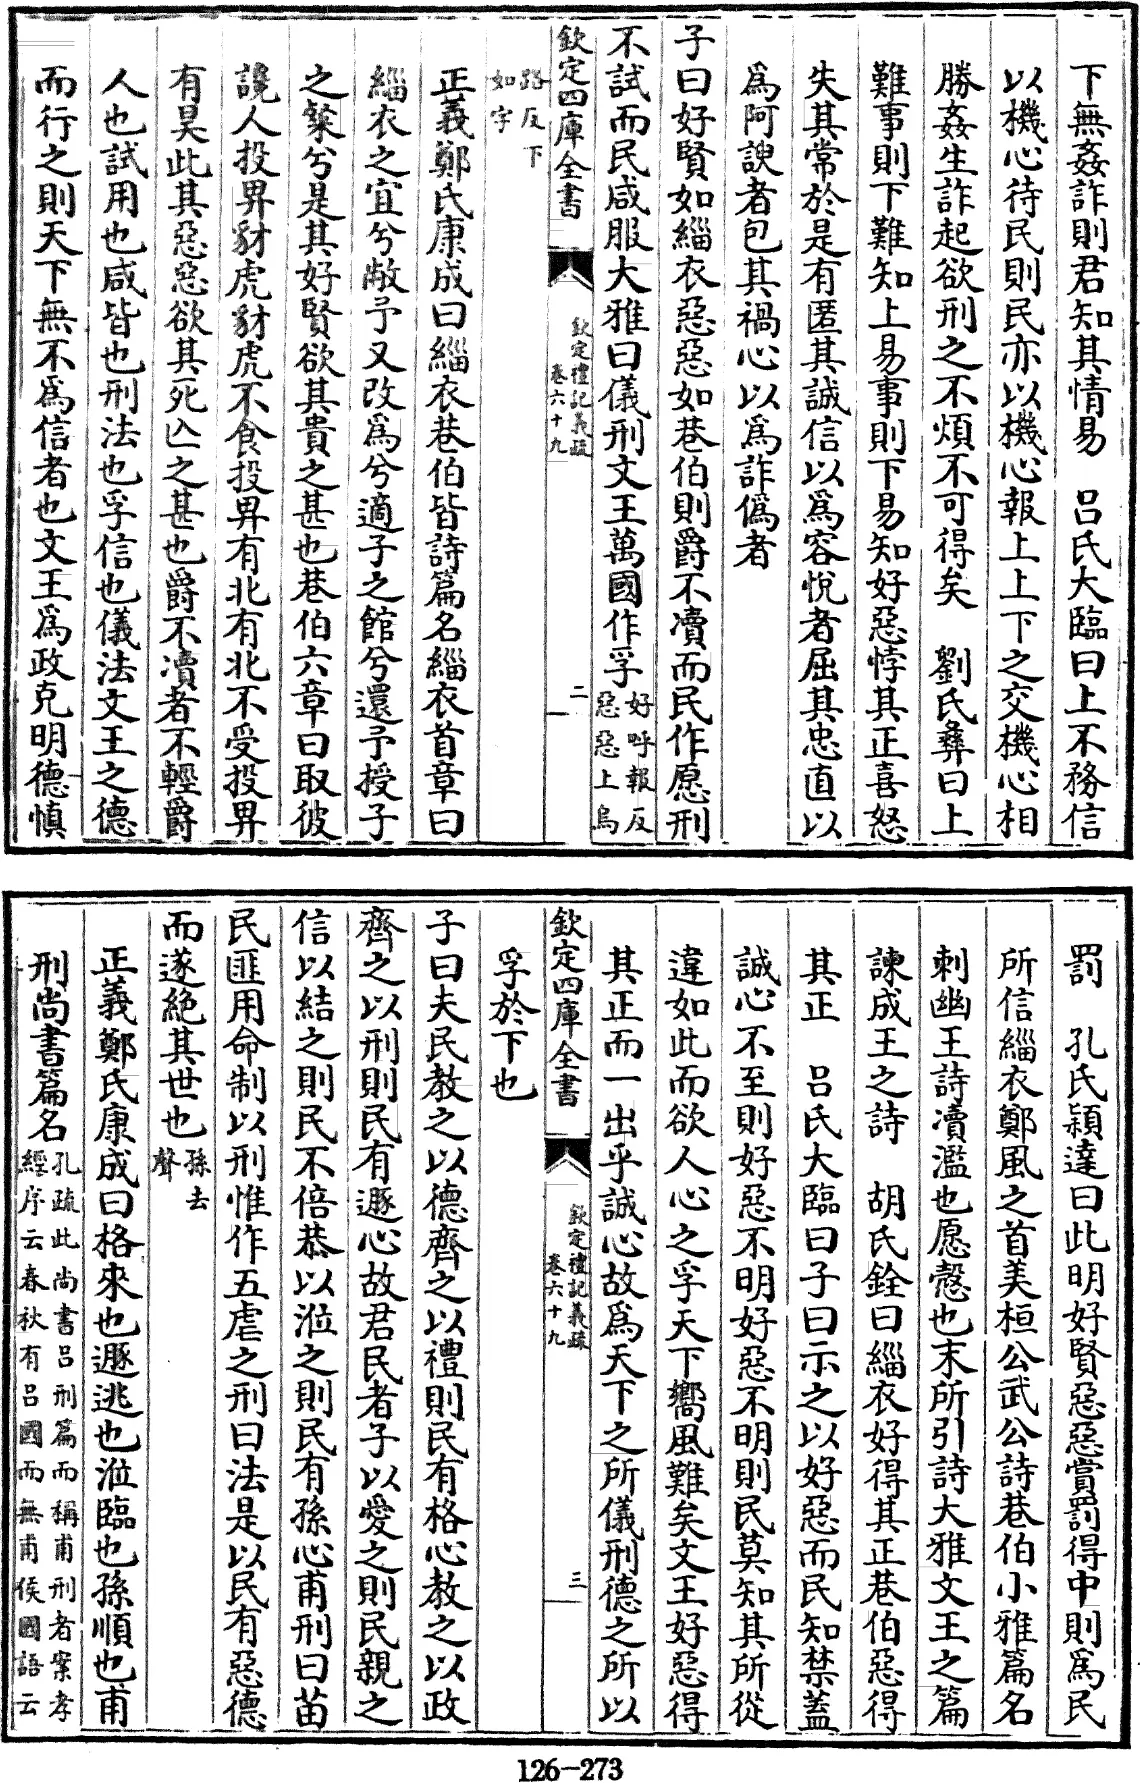 下無姦詐則君知其情易　呂氏大臨曰上不務信
以機心待民則民亦以機心報上上下之交機心相
勝姦生詐起欲刑之不煩不可得矣　劉氏彝曰上
難事則下難知上易事則下易知好惡悖其正喜怒
失其常於是有匿其誠信以為容悅者屈其忠直以
為阿諛者包其禍心以為詐偽者
子曰好賢如緇衣惡惡如巷伯則爵不瀆而民作愿刑
不試而民咸服大雅曰儀刑文王萬國作孚好呼報反
惡惡上烏
欽定四庫全書
欽定禮記義疏
卷六十九
二
路反下
如字
正義鄭氏康成曰緇衣巷伯皆詩篇名緇衣首章曰
緇衣之宜兮敝予又改為兮適子之館兮還予授子
之粲兮是其好賢欲其貴之甚也巷伯六章曰取彼
讒人投畀豺虎豺虎不食投畀有北有北不受投畀
有昊此其惡惡欲其死亾之甚也爵不瀆者不輕爵
人也試用也咸皆也刑法也孚信也儀法文王之德
而行之則天下無不為信者也文王為政克明德慎
罰　孔氏穎達曰此明好賢惡惡賞罰得中則為民
所信緇衣鄭風之首美桓公武公詩巷伯小雅篇名
刺幽王詩瀆濫也愿愨也末所引詩大雅文王之篇
諫成王之詩　胡氏銓曰緇衣好得其正巷伯惡得
其正　呂氏大臨曰子曰示之以好惡而民知禁蓋
誠心不至則好惡不明好惡不明則民莫知其所從
違如此而欲人心之孚天下嚮風難矣文王好惡得
其正而一出乎誠心故為天下之所儀刑德之所以
欽定四庫全書
欽定禮記義疏
卷六十九
三
孚於下也
子曰夫民教之以德齊之以禮則民有格心教之以政
齊之以刑則民有遯心故君民者子以愛之則民親之
信以結之則民不倍恭以涖之則民有孫心甫刑曰苗
民匪用命制以刑惟作五虐之刑曰法是以民有惡德
而遂絕其世也孫去
聲
正義鄭氏康成曰格來也遯逃也涖臨也孫順也甫
刑尚書篇名孔疏此尚書呂刑篇而稱甫刑者案孝
經序云春秋有呂國而無甫侯國語云
126-273